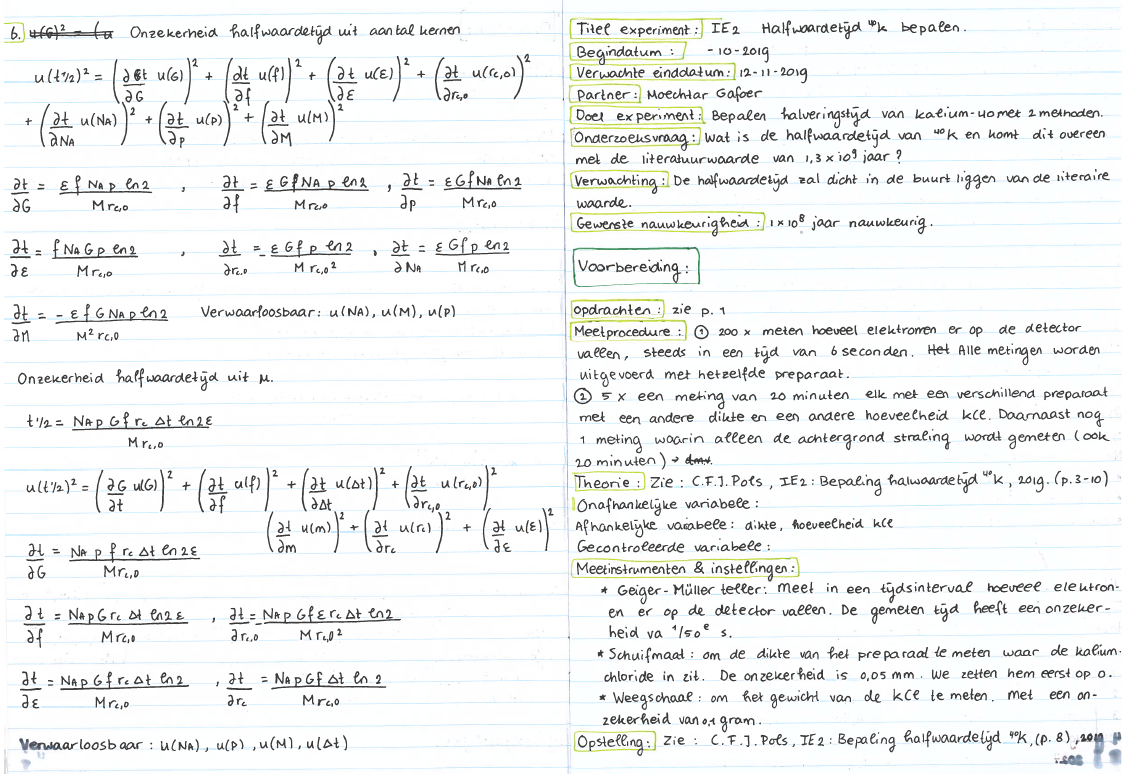 6. u(G)² = (u Onzekerheid halfwaardetijd uit aantal kernen
u(t½)² = (∂t/∂G u(G))² + (∂t/∂f u(f))² + (∂t/∂ε u(ε))² + (∂t/∂rc,0 u(rc,0))²
+ (∂t/∂NA u(NA))² + (∂t/∂p u(p))² + (∂t/∂M u(M))²
∂t/∂G = ε f NA p ln2 / M rc,0 , ∂t/∂f = ε G f NA p ln2 / M rc,0 , ∂t/∂p = ε G f NA ln2 / M rc,0
∂t/∂ε = f NA G p ln2 / M rc,0 , ∂t/∂rc,0 = - ε G f p ln2 / M rc,0² , ∂t/∂NA = ε G f p ln2 / M rc,0
∂t/∂M = - ε f G NA p ln2 / M² rc,0 Verwaarloosbaar: u(NA), u(M), u(p)
Onzekerheid halfwaardetijd uit μ.
t½ = NA p G f rc Δt ln2 ε / M rc,0
u(t½)² = (∂G/∂t u(G))² + (∂t/∂f u(f))² + (∂t/∂Δt u(Δt))² + (∂t/∂rc,0 u(rc,0))²
(∂t/∂m u(m))² + (∂t/∂rc u(rc))² + (∂t/∂ε u(ε))²
∂t/∂G = NA p f rc Δt ln2 ε / M rc,0
∂t/∂f = NA p G rc Δt ln2 ε / M rc,0 , ∂t/∂rc,0 = NA p G f ε rc Δt ln2 / M rc,0²
∂t/∂ε = NA p G f rc Δt ln2 / M rc,0 , ∂t/∂rc = NA p G f Δt ln 2 / M rc,0
Verwaarloosbaar: u(NA), u(p), u(M), u(Δt)
Titel experiment: IE2 Halfwaardetijd ⁴⁰K bepalen.
Begindatum: -10-2019
Verwachte einddatum: 12-11-2019
Partner: Moechtar Gafoer
Doel experiment: Bepalen halveringstijd van kalium-40 met 2 methoden.
Onderzoeksvraag: Wat is de halfwaardetijd van ⁴⁰K en komt dit overeen
met de literatuurwaarde van 1,3 × 10⁹ jaar?
Verwachting: De halfwaardetijd zal dicht in de buurt liggen van de literaire
waarde.
Gewenste nauwkeurigheid: 1 × 10⁸ jaar nauwkeurig.
Voorbereiding:
opdrachten: zie p. 1
Meetprocedure: ① 200 x meten hoeveel elektronen er op de detector
vallen, steeds in een tijd van 6 seconden. Het Alle metingen worden
uitgevoerd met hetzelfde preparaat.
② 5 x een meting van 20 minuten elk met een verschillend preparaat
met een andere dikte en een andere hoeveelheid KCl. Daarnaast nog
1 meting waarin alleen de achtergrond straling wordt gemeten (ook
20 minuten) → dmv.
Theorie: Zie: C.F.J. Pols, IE2: Bepaling halwaardetijd ⁴⁰K, 2019. (p.3-10)
Onafhankelijke variabele:
Afhankelijke variabele: dikte, hoeveelheid KCl
Gecontroleerde variabele:
Meetinstrumenten & instellingen:
* Geiger-Müller teller: meet in een tijdsinterval hoeveel elektron-
en er op de detector vallen. De gemeten tijd heeft een onzeker-
heid va 1/50ᵉ s.
* Schuifmaat: om de dikte van het preparaat te meten waar de kalium-
chloride in zit. De onzekerheid is 0,05 mm. We zetten hem eerst op 0.
* Weegschaal: om het gewicht van de KCl te meten. met een on-
zekerheid van 0,1 gram.
Opstelling: Zie: C.F.J. Pols, IE2: Bepaling halfwaardetijd ⁴⁰K, (p. 8), 2019